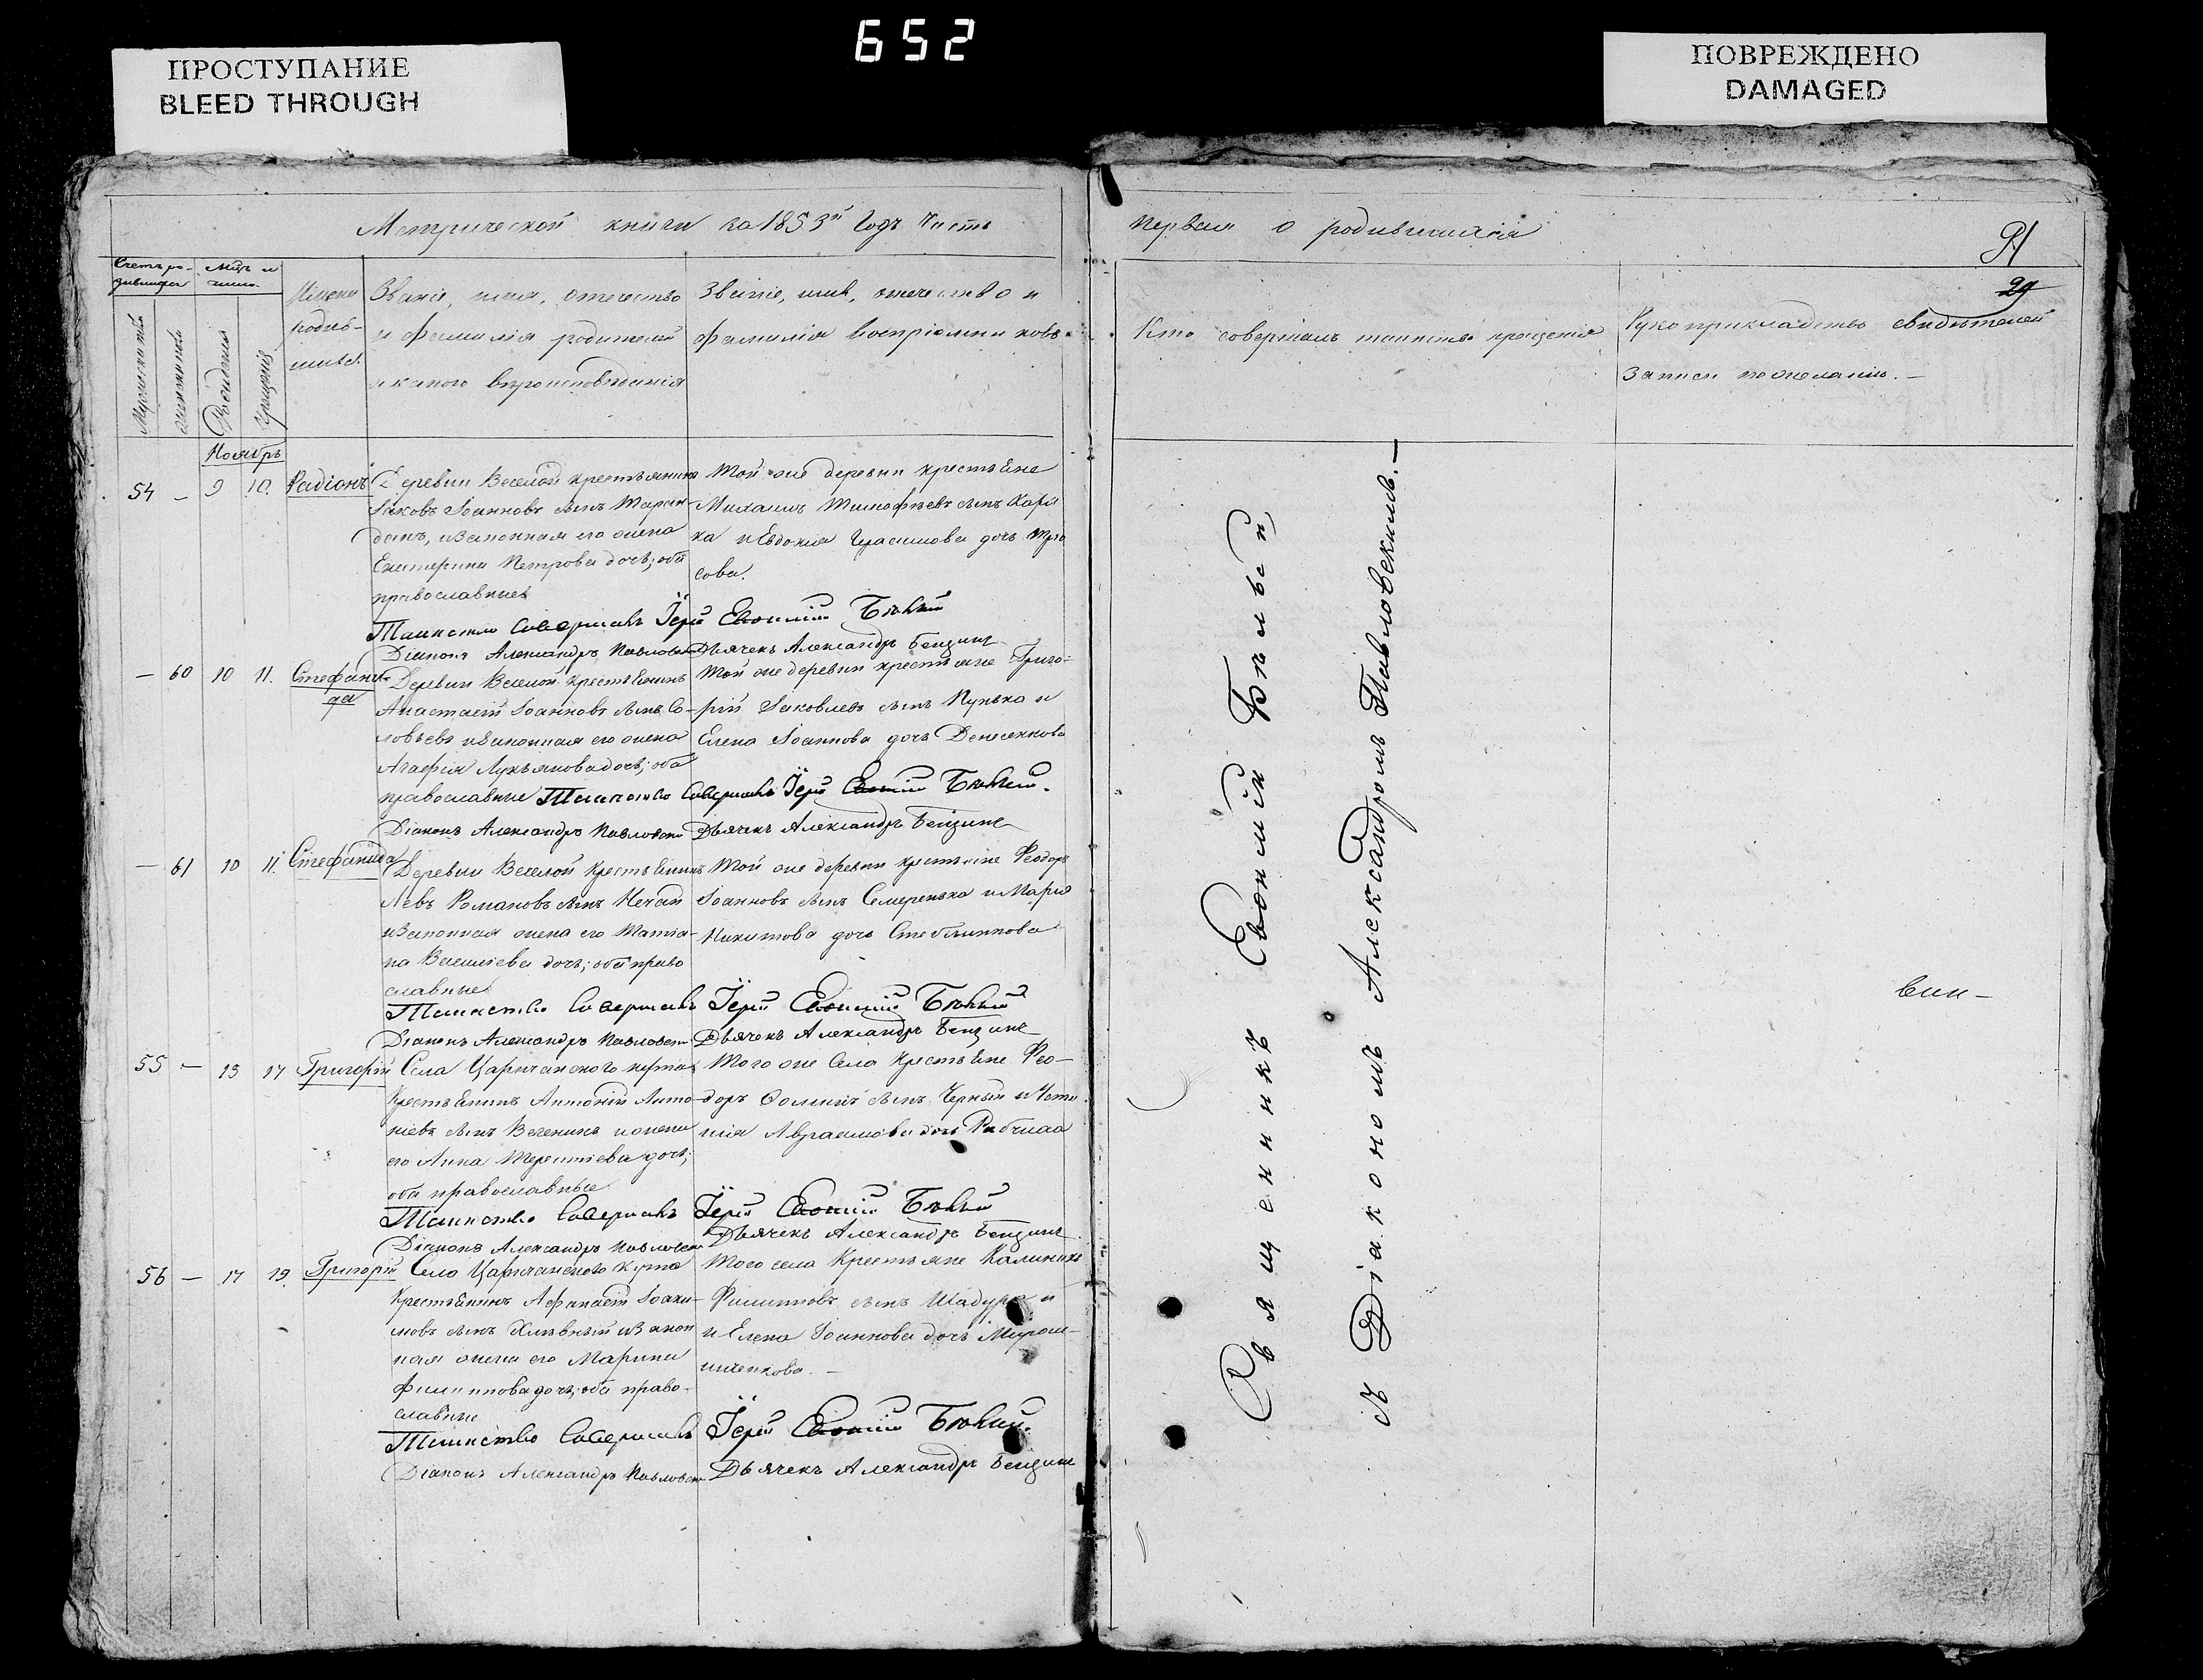 652
ПРОСТУПАНИЕ
BLEED THROUGH
ПОВРЕЖДЕНО
DAMAGED
Метрической книги за 1853й Годъ Часть
первая о родившихся
91
29
Счетъ ро-
дившихся
Мцъ и
число.
Мужеска
женска
Рожденія
Крещенія
Имена
родив-
шихся.
Званіе, имя, отечество
и фамилія родителей
и какого вѣроисповѣданія
Званіе, имя, отечество и
фамилія воспріемниковъ
Кто совершалъ таинство крещенія
Рукоприкладство свидѣтелей
записи по желанію.
Ноябрь
54 – 9 10. Радіонъ
Деревни Веселой крестьянинъ
Іаковъ Іоанновъ сынъ
законная его жена
Екатерина Петрова дочь; оба
православные
Той же деревни крестьяне
Михаилъ Тимофѣевъ сынъ
ка и Евдокія Герасимова дочь
сова.
Таинство совершалъ Іерей Евфимій Бѣлый
Діаконъ Александръ Павловскій Дьячекъ Александръ
– 60 10 11. Стефани-
да
Деревни Веселой крестьянинъ
Анастасій Іоанновъ сынъ Со-
ловьевъ и законная его жена
Агафія Лукьянова дочь; оба
православные
Той же деревни крестьяне Григо-
рій Іаковлевъ сынъ Пунька и
Елена Іоаннова дочь Денесенкова
Таинство совершалъ Іерей Евфимій Бѣлый.
Діаконъ Александръ Павловскій Дьячекъ Александръ
– 61 10 11. Стефанида
Деревни Веселой крестьянинъ
Левъ Романовъ сынъ Нечай
и законная жена его Татіа-
на Василіева дочь; оба право
славные
Той же деревни крестьяне Феодоръ
Іоанновъ сынъ Семеренька и Марія
Никитова дочь
Таинство совершалъ Іерей Евфимій Бѣлый
Діаконъ Александръ Павловскій Дьячекъ Александръ
55 – 13 17 Григорій
Села Царичанского кута
крестьянинъ Антоній Анто-
ніевъ сынъ и жена
его Анна Терентіева дочь;
оба православные
Того же Села крестьяне Фео-
доръ Фоминъ сынъ Черный и
Авраамова дочь
Таинство совершалъ Іерей Евфимій Бѣлый
Діаконъ Александръ Павловскій Дьячекъ Александръ
56 – 17 19. Григорій
Села Царичанского кута
крестьянинъ Афанасій Іоаки-
мовъ сынъ Хлѣвный и закон
ная жена его Марина
Филиппова дочь; оба право-
славные
Того села крестьяне Калиникъ
Филипповъ сынъ Шадура и
и Елена Іоаннова дочь Мирош-
ниченкова. –
Таинство совершалъ Іерей Евфимій Бѣлый.
Діаконъ Александръ Павловскій Дьячекъ Александръ
Священникъ Евфимій Бѣлый
съ Діакономъ Александромъ Павловскимъ. –